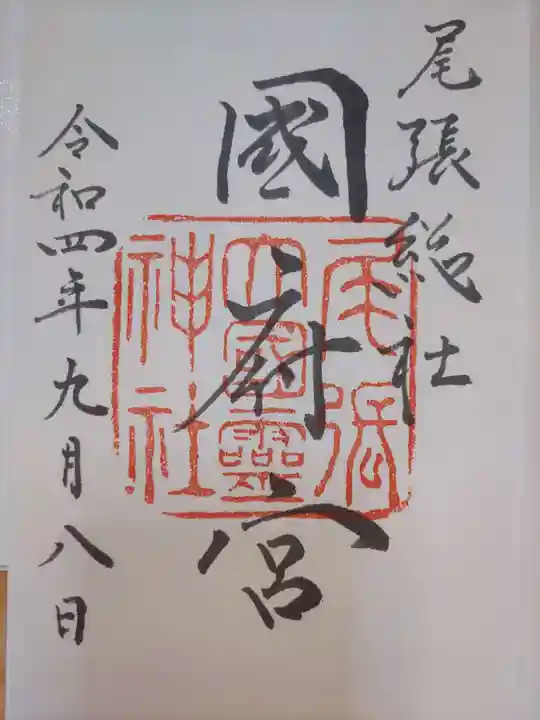 尾張総社
國府宮
尾張
大國靈
神社
令和四年九月八日